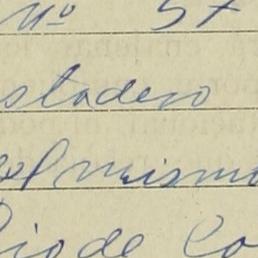 nº 57
stadero
el mismo
Rio de Co